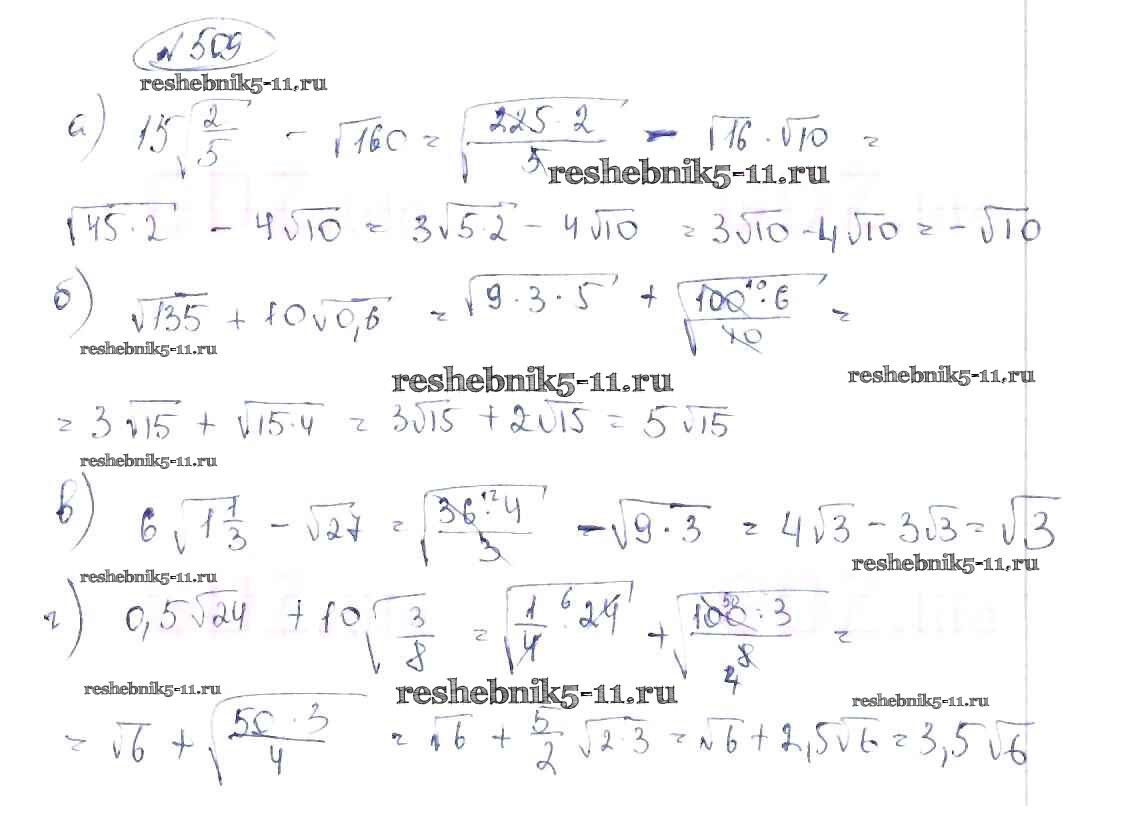 № 509
reshebnik5-11.ru
а) 15√(2/5) - √160 = √(225·2/5) - √16·√10 =
reshebnik5-11.ru
√(45·2) - 4√10 = 3√(5·2) - 4√10 = 3√10 - 4√10 = -√10
б) √135 + 10√0,6 = √(9·3·5) + √(100·6/10) =
10
reshebnik5-11.ru
reshebnik5-11.ru
reshebnik5-11.ru
= 3√15 + √(15·4) = 3√15 + 2√15 = 5√15
reshebnik5-11.ru
в) 6√(1 1/3) - √27 = √(36·4/3) - √(9·3) = 4√3 - 3√3 = √3
12
reshebnik5-11.ru
reshebnik5-11.ru
г) 0,5√24 + 10√(3/8) = √(1/4·24) + √(100·3/8) =
6 50 4
reshebnik5-11.ru
reshebnik5-11.ru
reshebnik5-11.ru
= √6 + √(50·3/4) = √6 + 5/2√(2·3) = √6 + 2,5√6 = 3,5√6